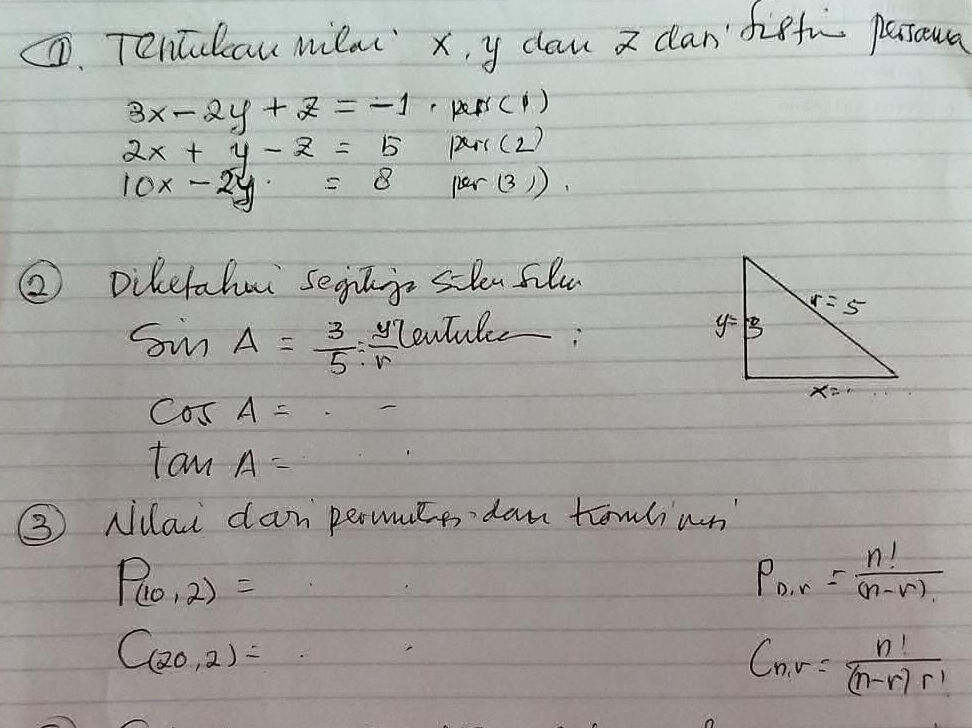 ①. Tentukan nilai x, y dan z dari sistim persama
3x - 2y + z = -1 . pers (1)
2x + y - z = 5 pers (2)
10x - 2y. = 8 per (3)).
② Diketahui segitiga siku siku
Sin A = 3/5 = y/r tentukan :
y= 3
r= 5
x= . . . . .
Cos A = . -
tan A = .
③ Nilai dari permutasi dan kombinasi
P(10,2) = . .
P n,r = n!/(n-r)!
C(20,2) = . .
C n,r = n!/(n-r)! r!